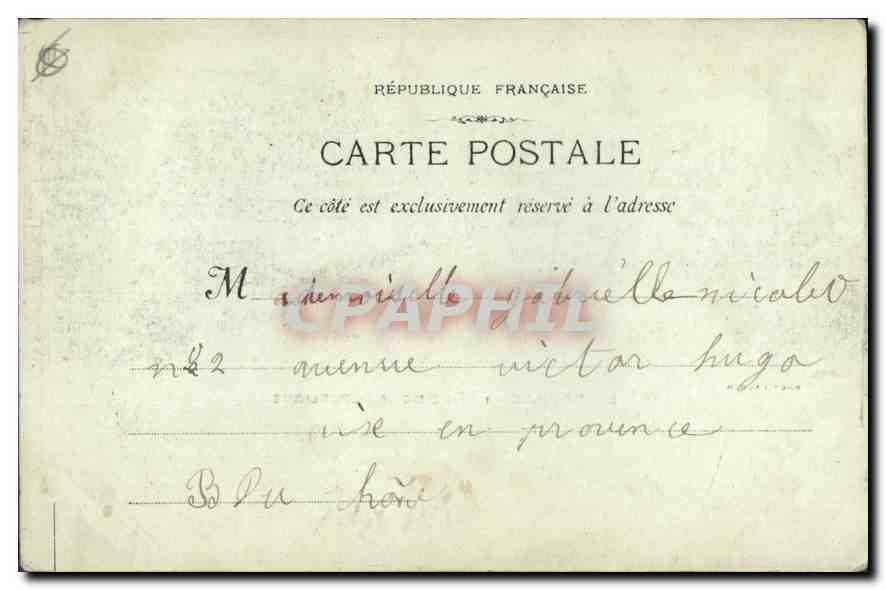 RÉPUBLIQUE FRANÇAISE
CARTE POSTALE
Ce côté est exclusivement réservé à l'adresse
CPAPHIL
Mademoiselle gabrielle
2 avenue victor hugo
aix en provence
B du hône